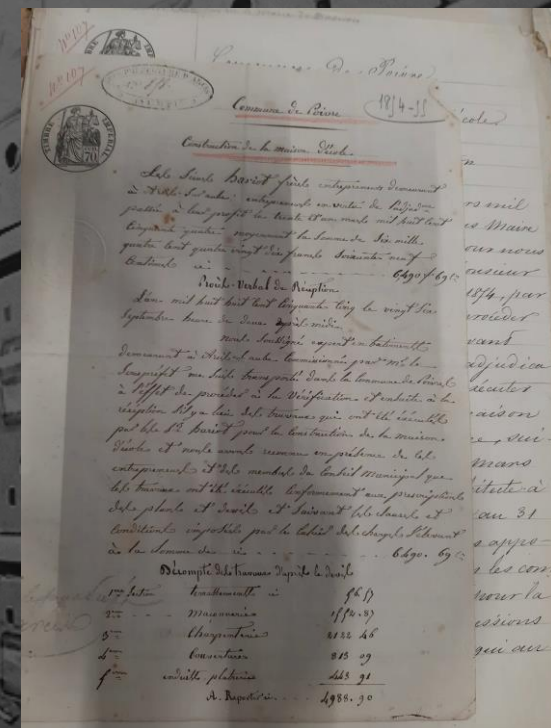 N° 107
Commune de Poivre
N° 107
1854-55
TIMBRE IMPERIAL
70
Commune de Poivre
Construction de la maison d'école
Les Sieurs Bariot frères entrepreneurs demeurant
à Arcis sur aube entrepreneurs en vertu de
passée à leur profit le trente et un mars mil huit cent
cinquante quatre moyennant la somme de Six mille
quatre cent quatre vingt dix francs soixante neuf
Centimes ci 6490 f. 69 c
Procès-Verbal de Réception
L'an mil huit cent cinquante cinq le vingt six
Septembre heure de deux après midi
nous Soussigné expert en batiments
demeurant à Arcis s aube Commissionné par Mr le
Souspréfet me suis transporté dans la Commune de Poivre
à l'effet de procéder à la Vérification et ensuite à la
réception s'il y a lieu des travaux qui ont été exécutés
par les Srs Bariot pour la Construction de la maison
d'école et nous avons reconnu en présence de ces
entrepreneurs et des membres du Conseil Municipal que
les travaux ont été exécutés Conformément aux prescriptions
des plans et devis et Suivant les clauses et
Conditions imposées par le Cahier des charges S'élevant
à la Somme de ci 6490. 69 c
Décompte des travaux d'après le devis
1ere Section terrassements ci 56 57
2eme Maçonneries 1554. 87
3eme Charpenterie 2132 46
4eme Couvertures 813 09
5eme enduits platrerie 443 91
A Reporter ci 4988. 90
école
mil
Maire
pour nous
1854, par
procéder
avant
adjudica
exécuter
maison
mars
au 31
s appo-
les con
pour la
qui au